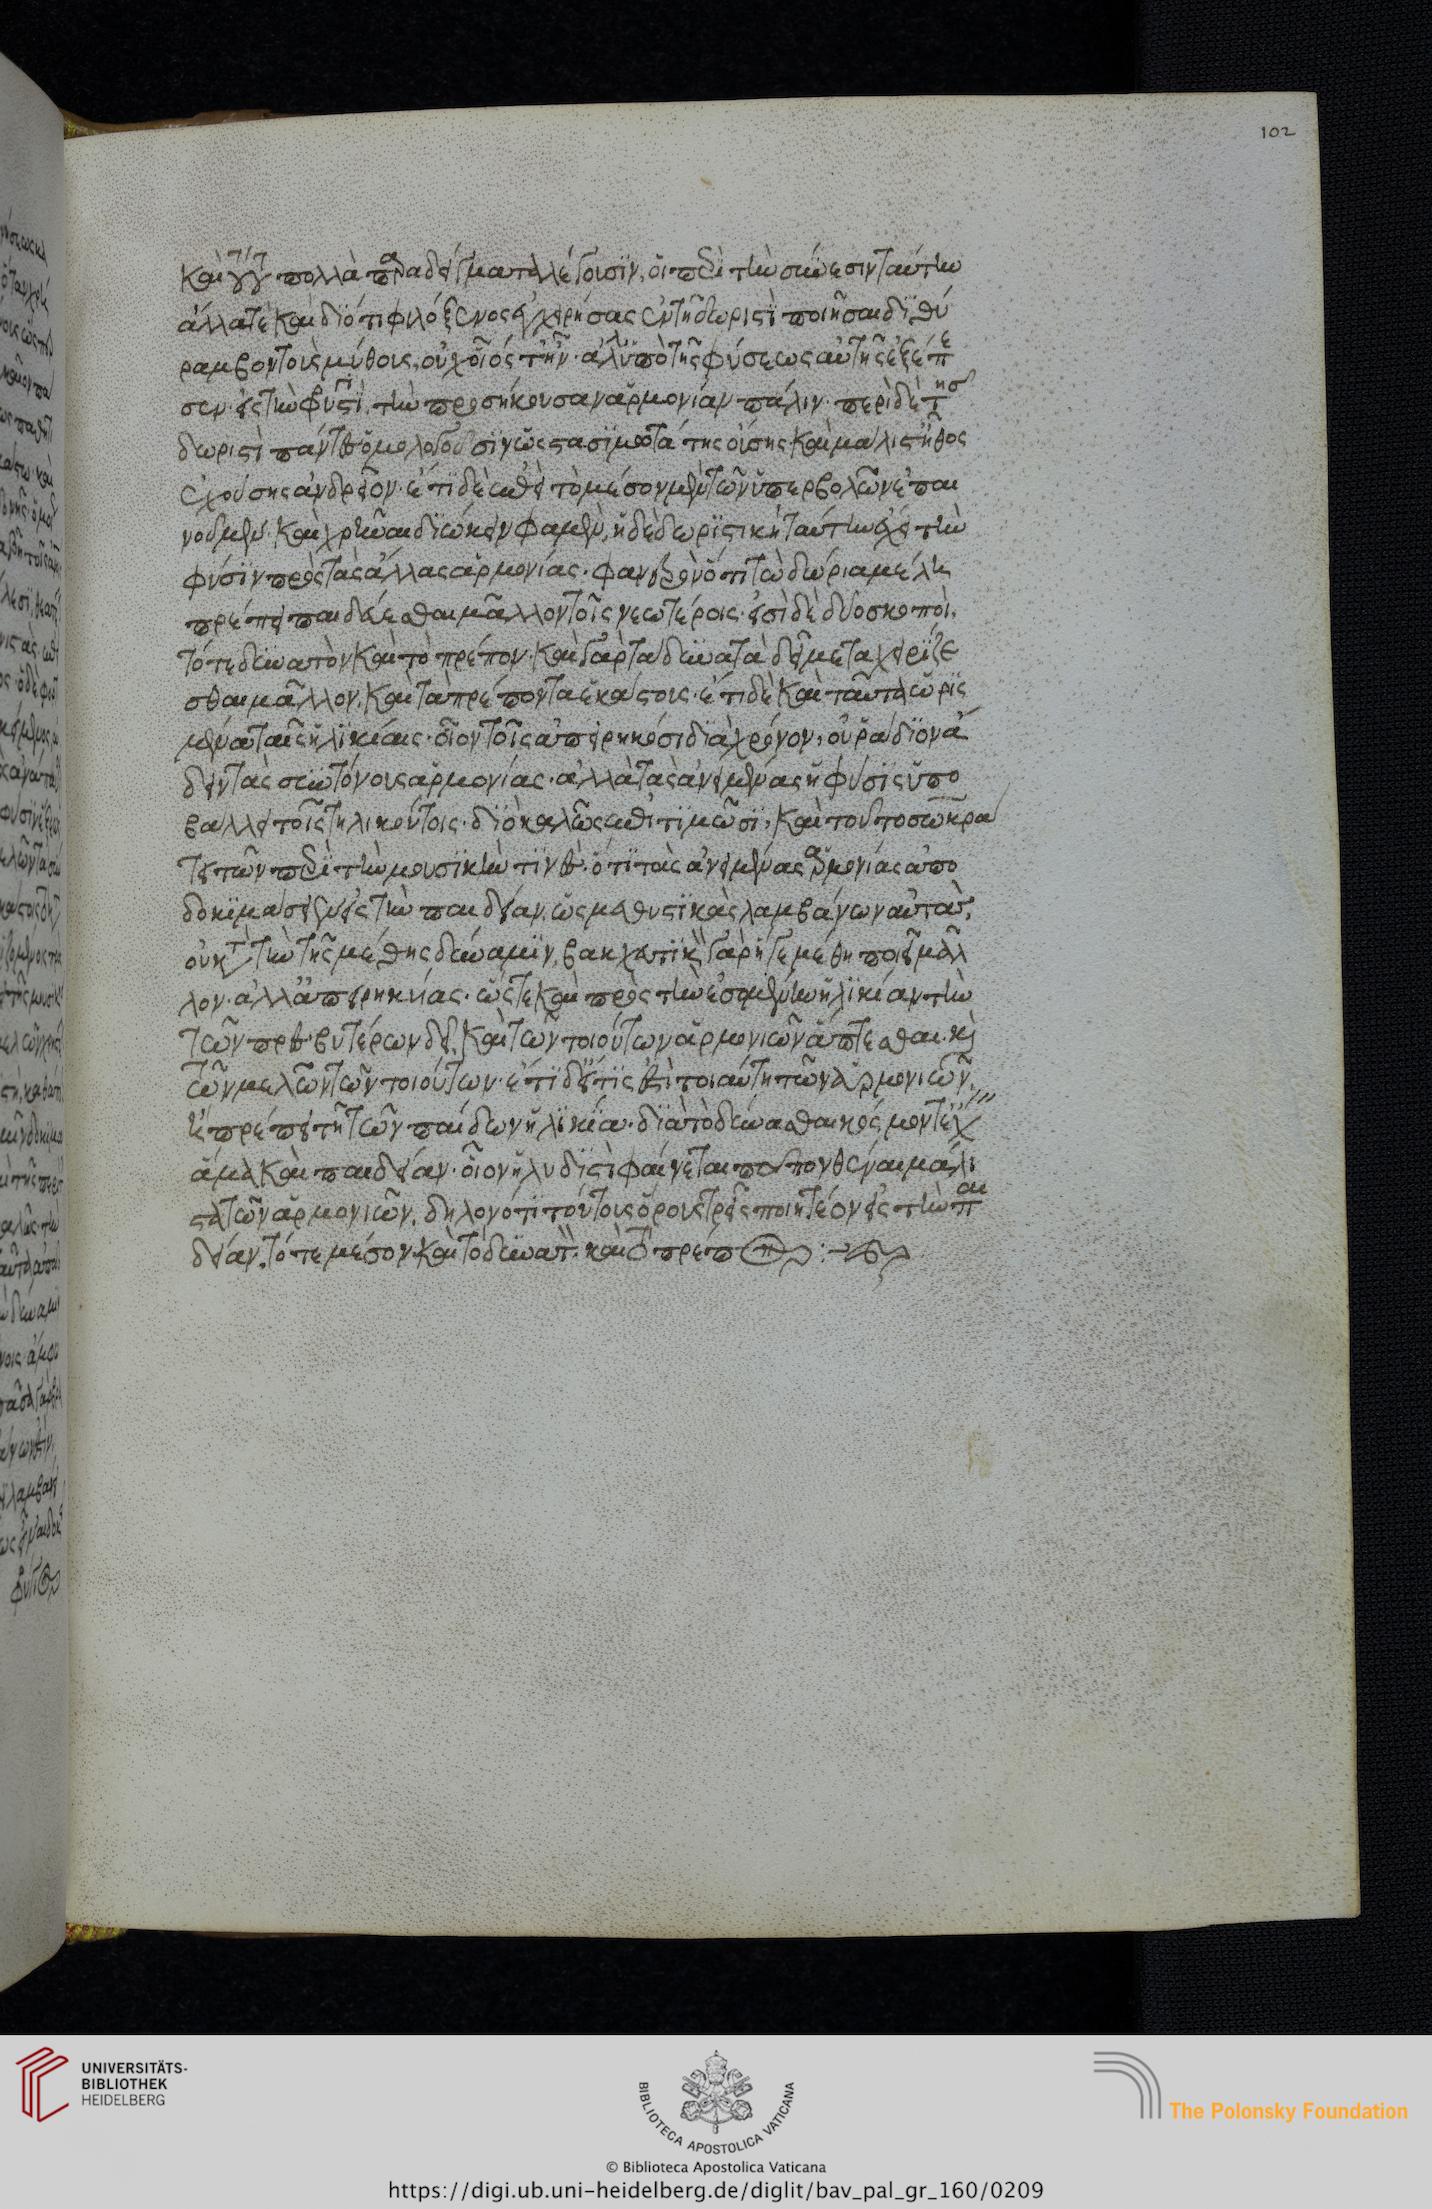 καὶ πολλὰ παραδείγματα λέγουσιν, οἱ περὶ τὴν σύνεσιν ταύτην
ἄλλα τὲ καὶ διότι φιλόξενος ἐγχειρήσας ἐν τῇ δωριστὶ ποιῆσαι διθύ
ραμβον τοὺς μύθους, οὐχ οἷός τ' ἦν· ἀλλ' ὑπὸ τῆς φύσεως αὐτῆς ἐξέπε
σεν εἰς τὴν φρυγιστὶ, τὴν προσήκουσαν ἁρμονίαν πάλιν· περὶ δὲ τῆς
δωριστὶ πάντες ὁμολογοῦσιν ὡς στασιμωτάτης οὔσης καὶ μάλιστ' ἦθος
ἐχούσης ἀνδρεῖον· ἔτι δὲ ἐπεὶ τὸ μέσον μὲν τῶν ὑπερβολῶν ἐπαι
νοῦμεν· καὶ χρῆναι διώκειν φαμὲν, ἡ δὲ δωριστικὴ ταύτην ἔχει τὴν
φύσιν πρὸς τὰς ἄλλας ἁρμονίας· φανερὸν ὅτι τὰ δώρια μέλη
πρέπει παιδεύεσθαι μᾶλλον τοῖς νεωτέροις· εἰσὶ δὲ δύο σκοποὶ,
τό τε δυνατὸν καὶ τὸ πρέπον· καὶ γὰρ τὰ δυνατὰ δεῖ μεταχειρίζε
σθαι μᾶλλον, καὶ τὰ πρέποντα ἑκάστοις· ἔτι δὲ καὶ ταῦτα ὡρισ
μένα ταῖς ἡλικίαις· οἷον τοῖς ἀπειρηκόσι διὰ χρόνον, οὐ ῥάδιον ἄ
δειν τὰς συντόνους ἁρμονίας· ἀλλὰ τὰς ἀνειμένας ἡ φύσις ὑπο
βάλλει τοῖς τηλικούτοις· διὸ καλῶς ἐπιτιμῶσι, καὶ τοῦτο σωκρά
τει τῶν περὶ τὴν μουσικὴν τινὲς· ὅτι τὰς ἀνειμένας ἁρμονίας ἀπο
δοκιμάσειεν εἰς τὴν παιδείαν, ὡς μεθυστικὰς λαμβάνων αὐτὰς,
οὐ κατὰ τὴν τῆς μέθης δύναμιν, βακχευτικὸν γὰρ ἥ γε μέθη ποιεῖ μᾶλ
λον· ἀλλ' ἀπειρηκυίας· ὥστε καὶ πρὸς τὴν ἐσομένην ἡλικίαν τὴν
τῶν πρεσβυτέρων δεῖ, καὶ τῶν τοιούτων ἁρμονιῶν ἅπτεσθαι· καὶ
τῶν μελῶν τῶν τοιούτων· ἔτι δ' εἴ τίς ἐστὶ τοιαύτη τῶν ἁρμονιῶν,
ἣ πρέπει τῇ τῶν παίδων ἡλικίᾳ· διὰ τὸ δύνασθαι κόσμον τ' ἔχειν
ἅμα καὶ παιδείαν· οἷον ἡ λυδιστὶ φαίνεται πεπονθέναι μάλι
στα τῶν ἁρμονιῶν, δῆλον ὅτι τούτοις ὅρους τρεῖς ποιητέον εἰς τὴν παι
δείαν, τό τε μέσον καὶ τὸ δυνατὸν καὶ τὸ πρέπον:
102
UNIVERSITÄTS-
BIBLIOTHEK
HEIDELBERG
BIBLIOTECA APOSTOLICA VATICANA
© Biblioteca Apostolica Vaticana
The Polonsky Foundation
https://digi.ub.uni-heidelberg.de/diglit/bav_pal_gr_160/0209